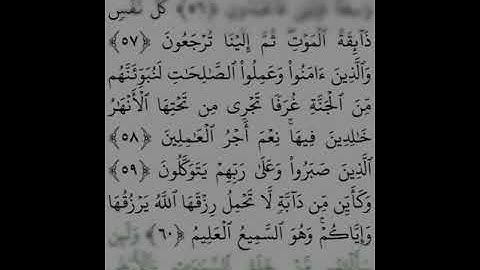 كُلُّ نَفْسٍ
ذَآئِقَةُ ٱلْمَوْتِ ثُمَّ إِلَيْنَا تُرْجَعُونَ ﴿٥٧﴾
وَٱلَّذِينَ ءَامَنُوا۟ وَعَمِلُوا۟ ٱلصَّـٰلِحَـٰتِ لَنُبَوِّئَنَّهُم
مِّنَ ٱلْجَنَّةِ غُرَفًا تَجْرِى مِن تَحْتِهَا ٱلْأَنْهَـٰرُ
خَـٰلِدِينَ فِيهَا ۚ نِعْمَ أَجْرُ ٱلْعَـٰمِلِينَ ﴿٥٨﴾
ٱلَّذِينَ صَبَرُوا۟ وَعَلَىٰ رَبِّهِمْ يَتَوَكَّلُونَ ﴿٥٩﴾
وَكَأَيِّن مِّن دَآبَّةٍ لَّا تَحْمِلُ رِزْقَهَا ٱللَّهُ يَرْزُقُهَا
وَإِيَّاكُمْ ۚ وَهُوَ ٱلسَّمِيعُ ٱلْعَلِيمُ ﴿٦٠﴾